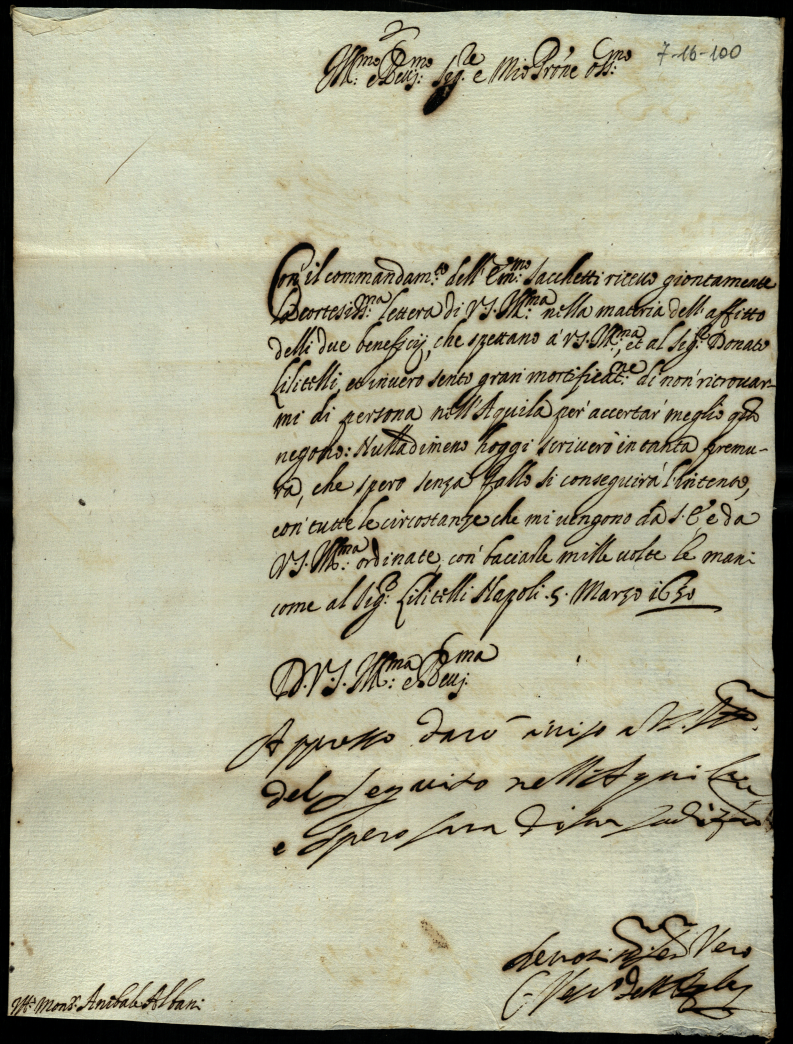 7-16-100
Ill:mo e Reu: Sig:re e Mio Prōne Oss:mo
Con' il commandam:to dell' Em:mo Sacchetti riceuo giontamente
la cortesiss:ma lettera di V.S. Ill:ma nella materia dell' affitto
delli due beneficij, che spettano à V.S. Ill:ma, et al Sig:r Donato
Lilitelli, et inuero sento gran mortificat:ne di non' ritrouar-
mi di persona nell' Aquila per' accertar' meglio q:to
negotio: Nulladimeno hoggi scriuerò in tanta premu-
ra, che spero senza fallo si conseguirà l'intento,
con' tutte le circostanze che mi uengono da S. E. e da
V.S. Ill:ma ordinate, con' baciarle mille uolte le mani
come al Sig:r Lilitelli Napoli 5. Marzo 1650
D. V. S. Ill:ma e Reu:ma
Appresso darò auiso a V.S. Ill:ma
del seguito nell'Aquila
e spero sarà di sua
deuotiss: et Vero
M:r Mons:r Anibale Albani